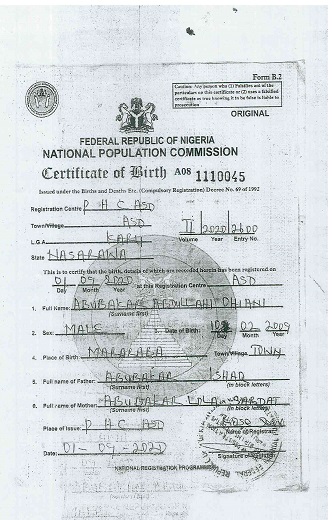 Form B.2
Caution: Any person who (1) Falsifies any of the
particulars on this certificate or (2) uses a falsified
certificate as true knowing it to be false is liable to
prosecution
ORIGINAL
FEDERAL REPUBLIC OF NIGERIA
NATIONAL POPULATION COMMISSION
Certificate of Birth A08 1110045
Issued under the Births and Deaths Etc. (Compulsory Registration) Decree No. 69 of 1992
Registration Centre P H C ASD
Town/Village ASD II 2020 2600
L.G.A KARU Volume Year Entry No.
State NASARAWA
This is to certify that the birth, details of which are recorded herein has been registered on
01 09 2020 at this Registration Centre ASD
Day Month Year
1. Full Name: ABUBAKAR ABDULLAHI
(Surname first)
2. Sex: MALE 3. Date of Birth: 02 2009
Day Month Year
4. Place of Birth: MARARABA Town/Village TOWN
5. Full name of Father: ABUBAKAR ISHAQ
(Surname first) (in block letters)
6. Full name of Mother: ABUBAKAR
(Surname first) (in block letters)
Place of Issue: P H C ASD
Name of Registrar
Date: 01-09-2020
Signature of Registrar
NATIONAL REGISTRATION PROGRAMME